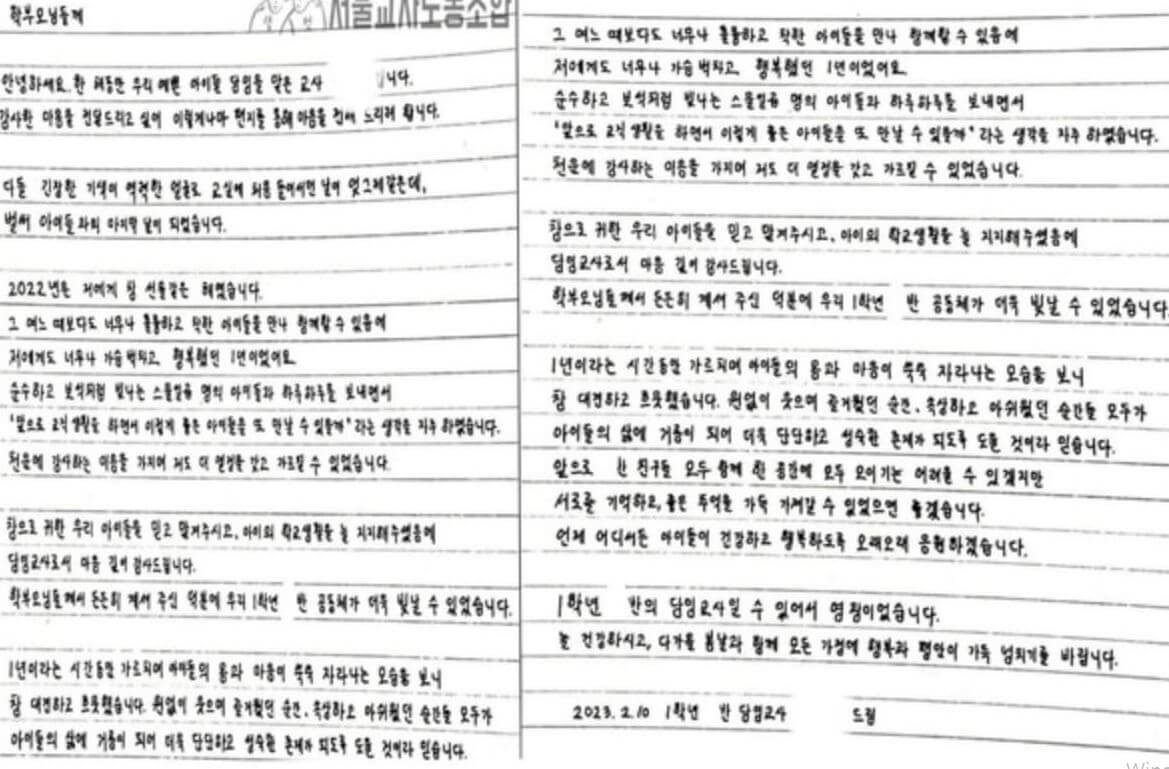 학부모님들께
서울교사노동조합
안녕하세요. 한 해동안 우리 예쁜 아이들 담임을 맡은 교사 니다.
감사한 마음을 전달드리고 싶어 이렇게나마 편지를 통해 마음을 전해 드리려 합니다.
다들 긴장한 기색이 역력한 얼굴로 교실에 처음 들어서던 날이 엊그제같은데,
벌써 아이들과의 마지막 날이 되었습니다.
2022년은 저에게 참 선물같은 해였습니다.
그 여느 때보다도 너무나 훌륭하고 착한 아이들을 만나 함께할 수 있음에
저에게도 너무나 가슴 벅차고 행복했던 1년이었어요
순수하고 보석처럼 빛나는 스물일곱 명의 아이들과 하루하루를 보내면서
'앞으로 교직 생활을 하면서 이렇게 좋은 아이들을 또 만날 수 있을까' 라는 생각을 자주 하였습니다.
천운에 감사하는 마음을 가지며 저도 더 열정을 갖고 가르칠 수 있었습니다.
참으로 귀한 우리 아이들을 믿고 맡겨주시고, 아이의 학교생활을 늘 지지해주셨음에
담임교사로서 마음 깊이 감사드립니다.
학부모님들께서 든든히 계셔 주신 덕분에 우리 1학년 반 공동체가 더욱 빛날 수 있었습니다.
1년이라는 시간동안 가르치며 아이들의 몸과 마음이 쑥쑥 자라나는 모습을 보니
참 대견하고 흐뭇했습니다. 원없이 웃으며 즐거웠던 순간, 속상하고 아쉬웠던 순간들 모두가
아이들의 삶에 거름이 되어 더욱 단단하고 성숙한 존재가 되도록 도울 것이라 믿습니다.
그 여느 때보다도 너무나 훌륭하고 착한 아이들을 만나 함께할 수 있음에
저에게도 너무나 가슴 벅차고 행복했던 1년이었어요
순수하고 보석처럼 빛나는 스물일곱 명의 아이들과 하루하루를 보내면서
'앞으로 교직 생활을 하면서 이렇게 좋은 아이들을 또 만날 수 있을까' 라는 생각을 자주 하였습니다.
천운에 감사하는 마음을 가지며 저도 더 열정을 갖고 가르칠 수 있었습니다.
참으로 귀한 우리 아이들을 믿고 맡겨주시고, 아이의 학교생활을 늘 지지해주셨음에
담임교사로서 마음 깊이 감사드립니다.
학부모님들께서 든든히 계셔 주신 덕분에 우리 1학년 반 공동체가 더욱 빛날 수 있었습니다.
1년이라는 시간동안 가르치며 아이들의 몸과 마음이 쑥쑥 자라나는 모습을 보니
참 대견하고 흐뭇했습니다. 원없이 웃으며 즐거웠던 순간, 속상하고 아쉬웠던 순간들 모두가
아이들의 삶에 거름이 되어 더욱 단단하고 성숙한 존재가 되도록 도울 것이라 믿습니다.
앞으로 한 친구들 모두 함께 한 공간에 모두 모이기는 어려울 수 있겠지만
서로를 기억하고, 좋은 추억을 가득 가져갈 수 있었으면 좋겠습니다.
언제 어디서든 아이들이 건강하고 행복하도록 오래오래 응원하겠습니다.
1학년 반의 담임교사일 수 있어서 영광이었습니다.
늘 건강하시고, 다가올 봄날과 함께 모든 가정에 행복과 평안이 가득 넘치기를 바랍니다.
2023. 2. 10 1학년 반 담임교사 드림